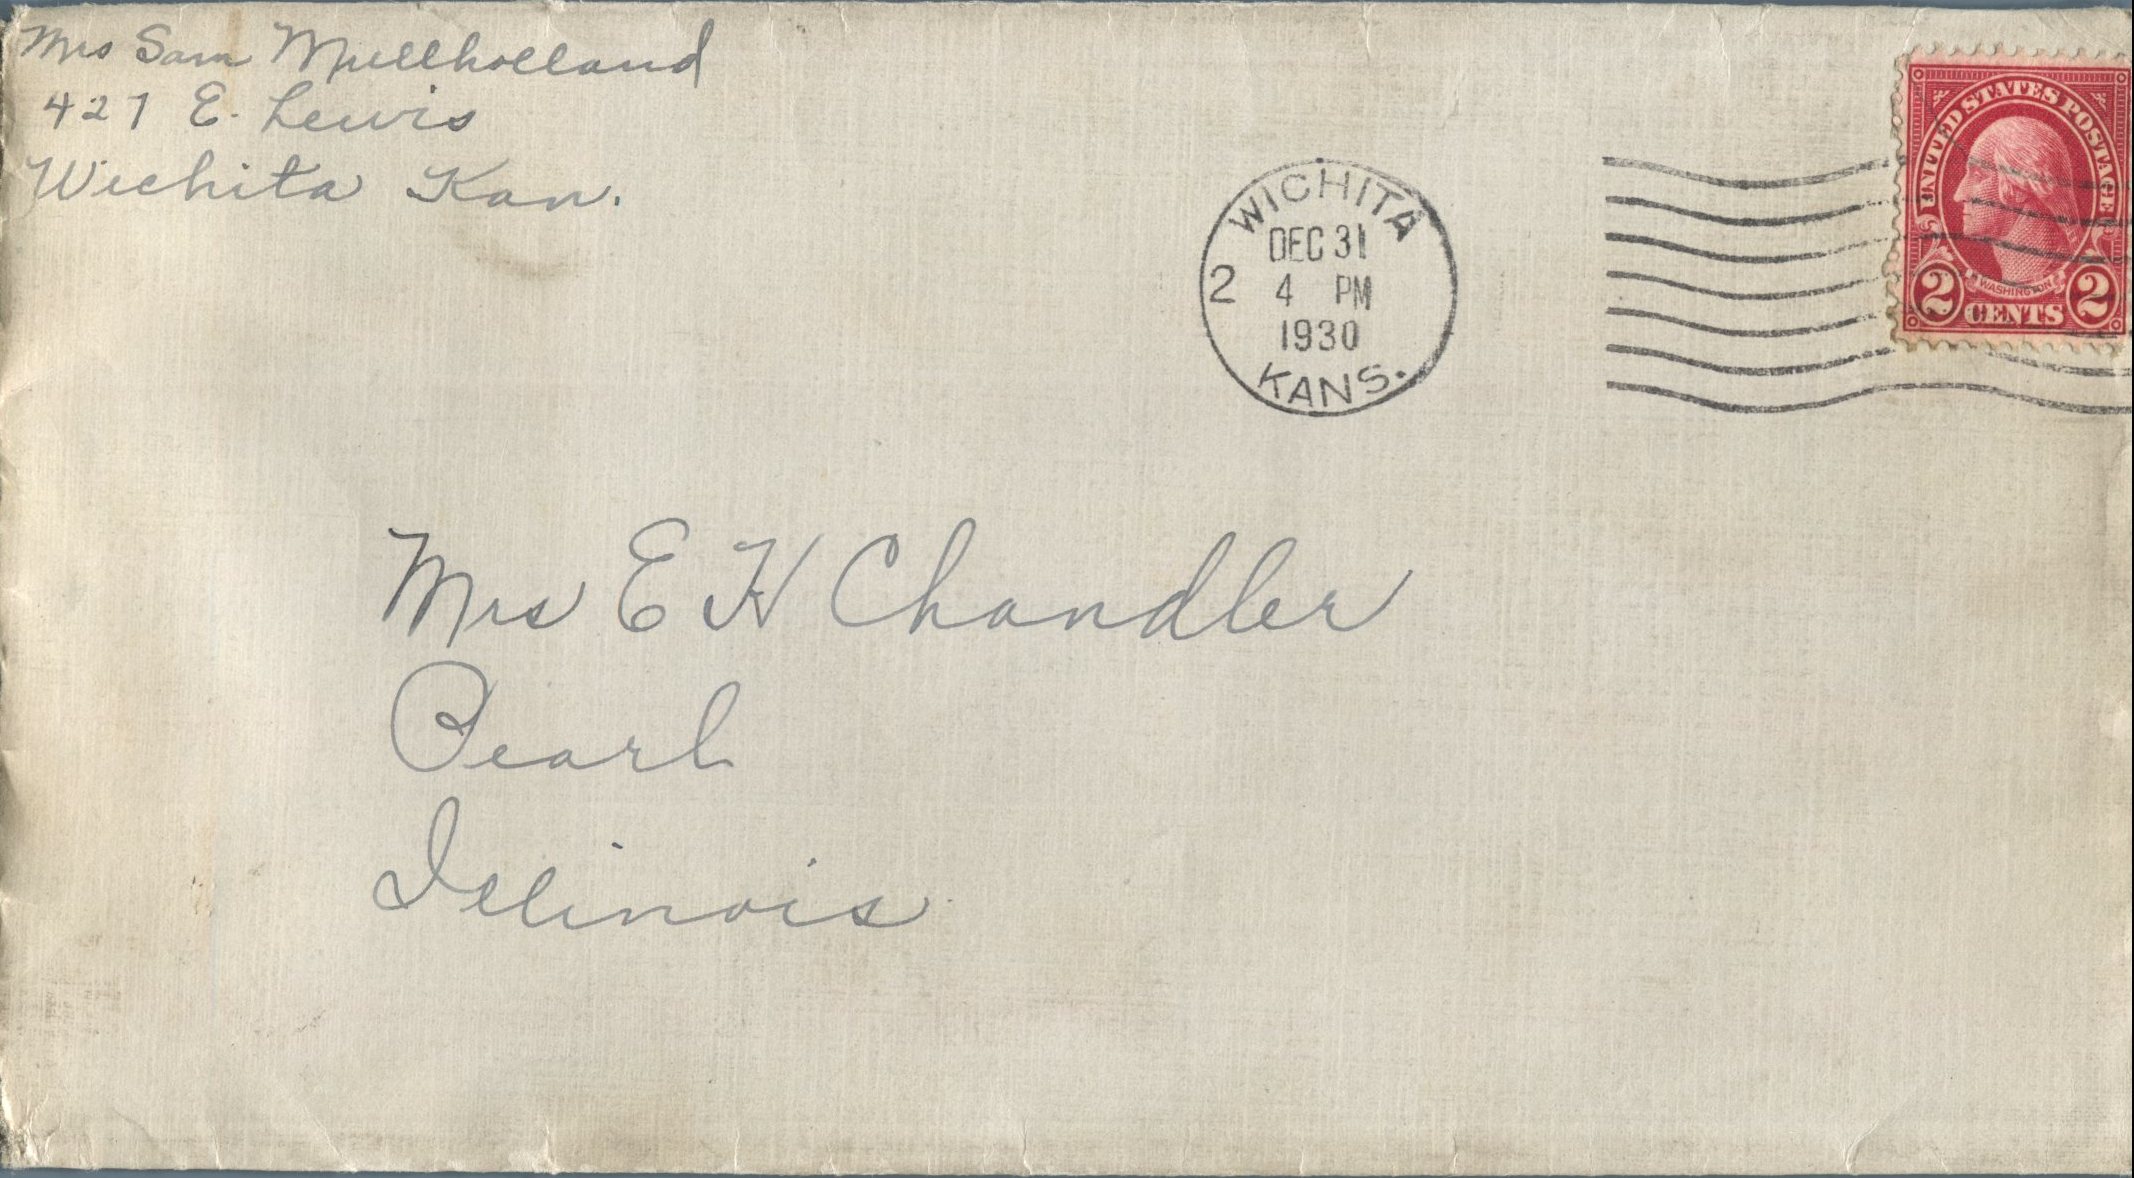 Mrs Sam Mullholland
427 E. Lewis
Wichita Kan.
WICHITA
DEC 31
2 4 PM
1930
KANS.
UNITED STATES POSTAGE
WASHINGTON
2 CENTS 2
Mrs E H Chandler
Pearl
Illinois